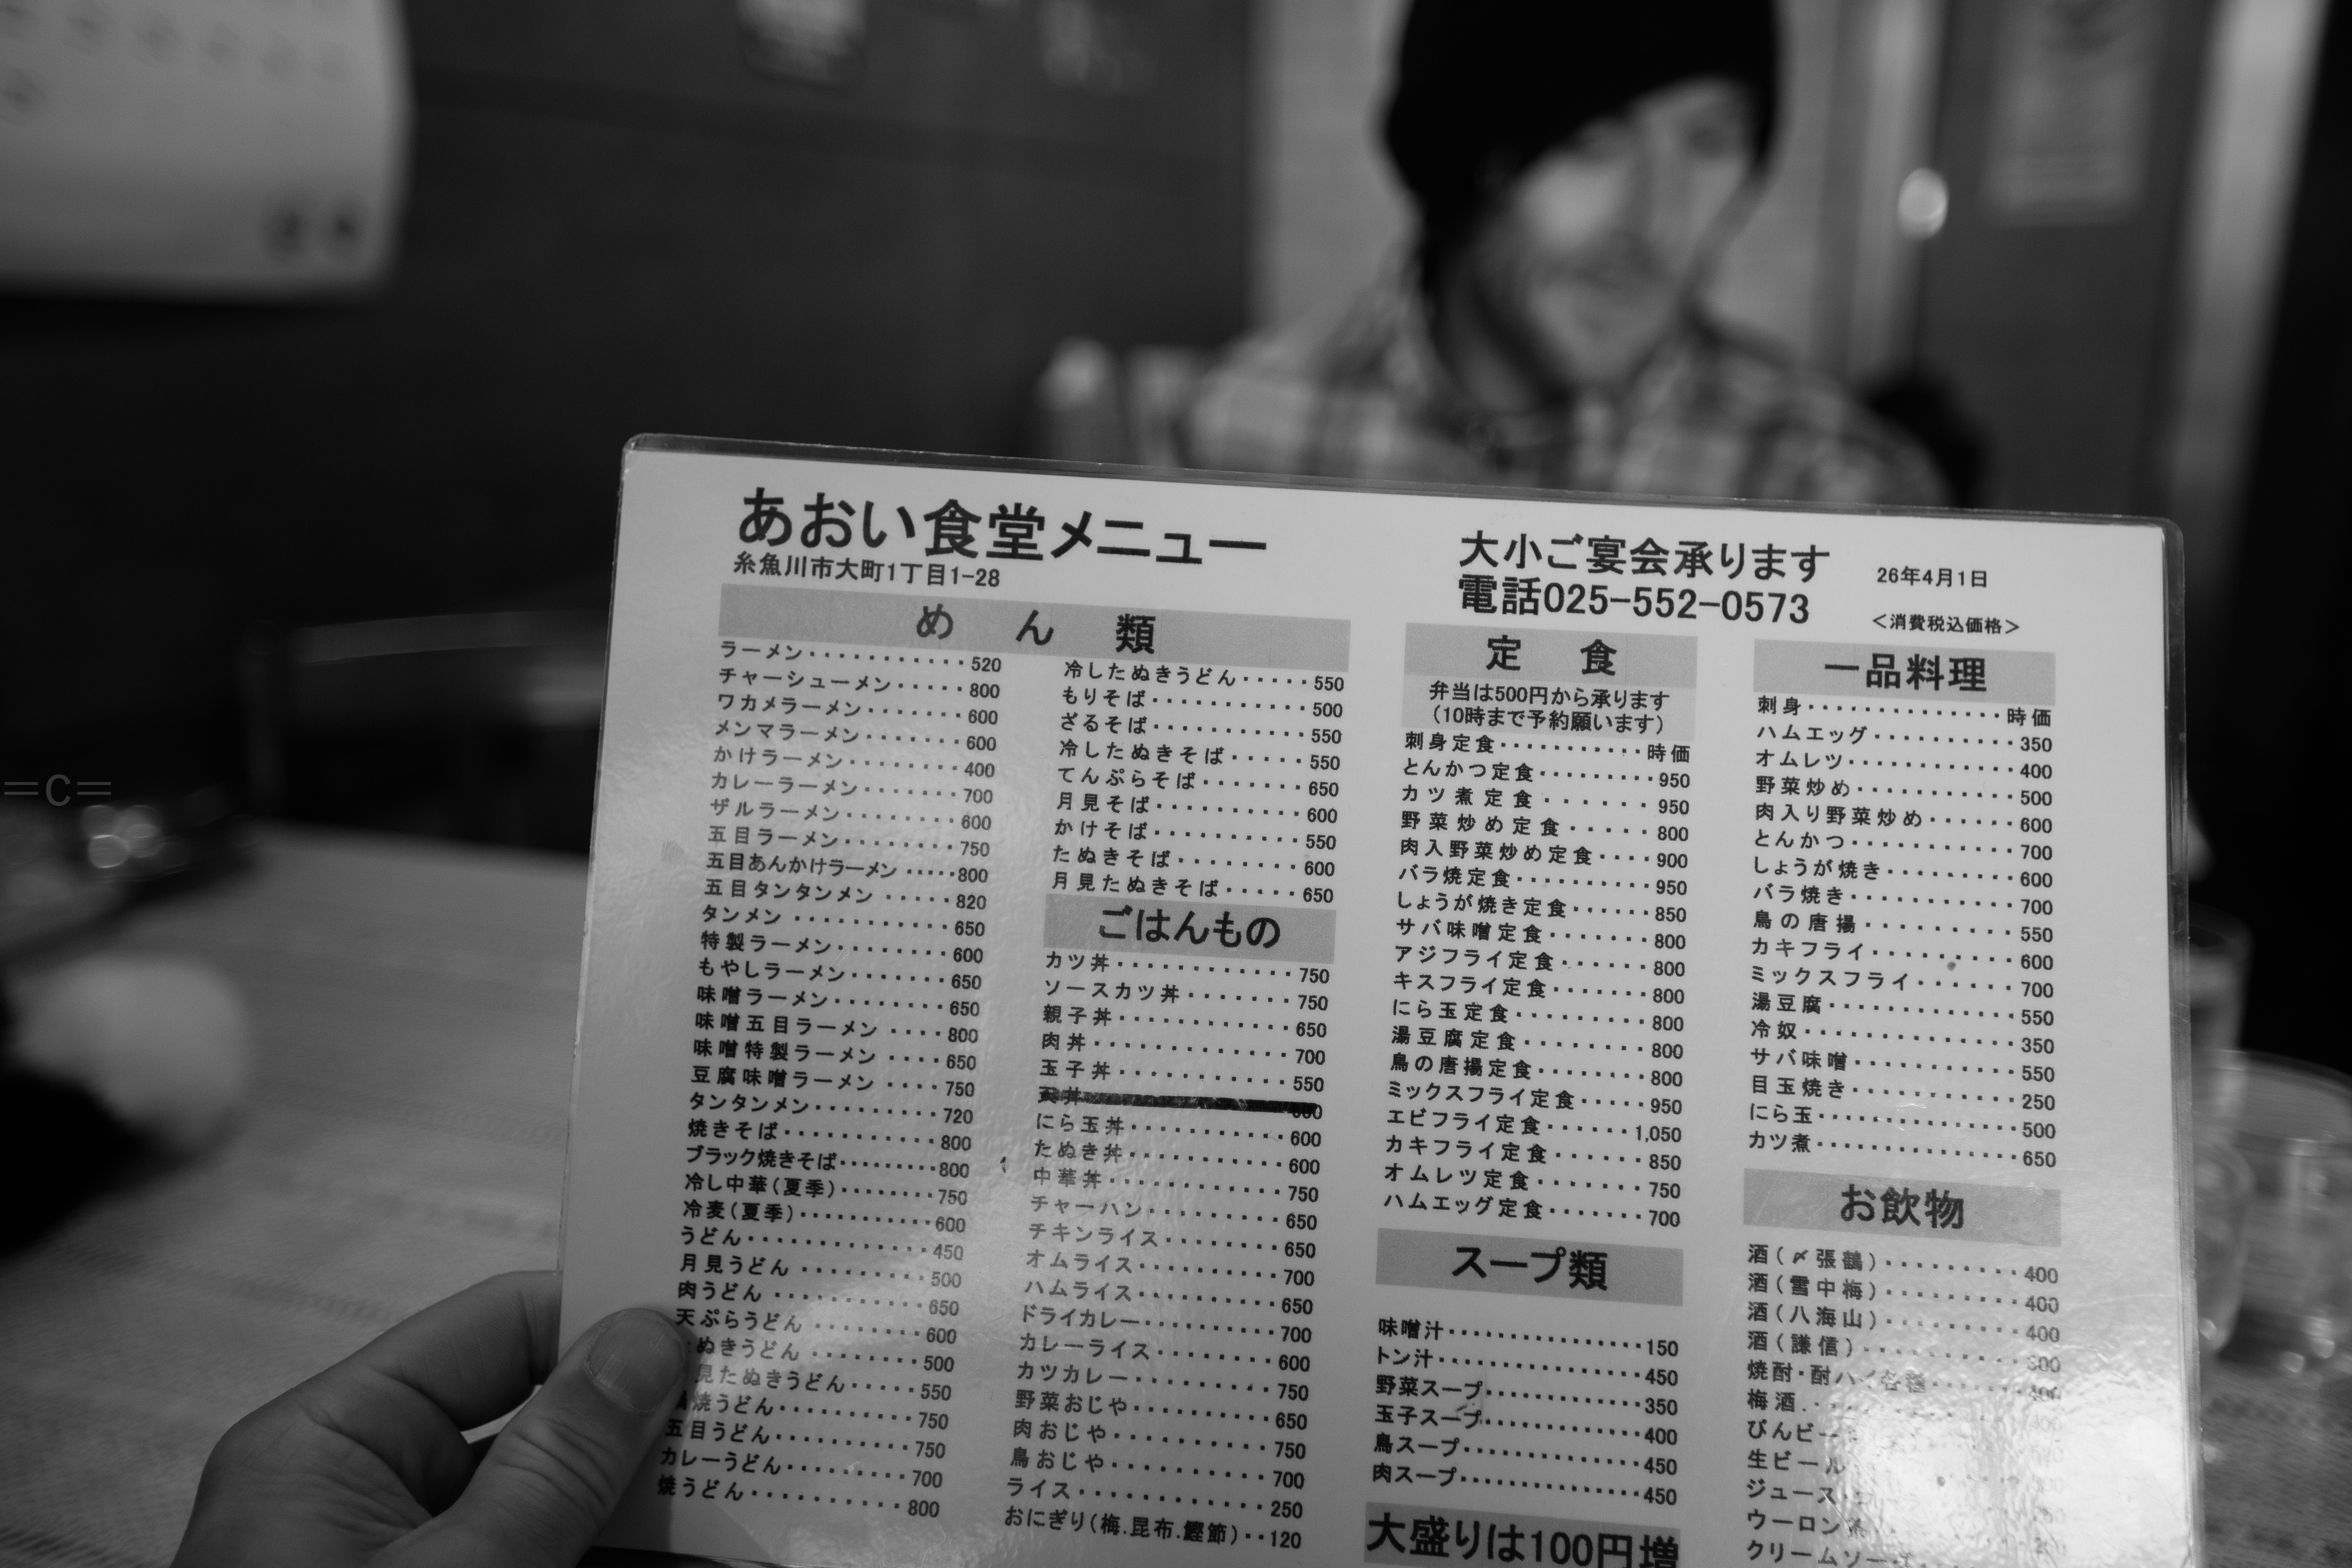 あおい食堂メニュー
糸魚川市大町1丁目1-28
大小ご宴会承ります
電話025-552-0573
26年4月1日
<消費税込価格>
めん類
ラーメン・・・・・・・・・・・520
チャーシューメン・・・・・800
ワカメラーメン・・・・・・・600
メンマラーメン・・・・・・・600
かけラーメン・・・・・・・・400
カレーラーメン・・・・・・・700
ザルラーメン・・・・・・・・600
五目ラーメン・・・・・・・・750
五目あんかけラーメン・・・・・800
五目タンタンメン・・・・・820
タンメン・・・・・・・・・・650
特製ラーメン・・・・・・・・600
もやしラーメン・・・・・・・650
味噌ラーメン・・・・・・・・650
味噌五目ラーメン・・・・800
味噌特製ラーメン・・・・650
豆腐味噌ラーメン・・・・750
タンタンメン・・・・・・・・・720
焼きそば・・・・・・・・・・・800
ブラック焼きそば・・・・・・・・・800
冷し中華(夏季)・・・・・・・・750
冷麦(夏季)・・・・・・・・・・・600
うどん・・・・・・・・・・・・・450
月見うどん・・・・・・・・・・500
肉うどん・・・・・・・・・・・650
天ぷらうどん・・・・・・・・・600
ぬきうどん・・・・・・・・・500
見たぬきうどん・・・・・550
焼うどん・・・・・・・・・・・750
五目うどん・・・・・・・・・・750
カレーうどん・・・・・・・・・700
焼うどん・・・・・・・・・・・・800
冷したぬきうどん・・・・・550
もりそば・・・・・・・・・・・500
ざるそば・・・・・・・・・・・550
冷したぬきそば・・・・・・550
てんぷらそば・・・・・・・・650
月見そば・・・・・・・・・・・600
かけそば・・・・・・・・・・・550
たぬきそば・・・・・・・・・600
月見たぬきそば・・・・・・650
ごはんもの
カツ丼・・・・・・・・・・・・・750
ソースカツ丼・・・・・・・・750
親子丼・・・・・・・・・・・・・650
肉丼・・・・・・・・・・・・・・700
玉子丼・・・・・・・・・・・・・550
にら玉丼・・・・・・・・・・・・600
たぬき丼・・・・・・・・・・・・600
中華丼・・・・・・・・・・・・・750
チャーハン・・・・・・・・・・650
チキンライス・・・・・・・・・650
オムライス・・・・・・・・・・700
ハムライス・・・・・・・・・・650
ドライカレー・・・・・・・・・・700
カレーライス・・・・・・・・・600
カツカレー・・・・・・・・・・・750
野菜おじや・・・・・・・・・・・650
肉おじや・・・・・・・・・・・・750
鳥おじや・・・・・・・・・・・・700
ライス・・・・・・・・・・・・・・250
おにぎり(梅.昆布.鰹節)・・120
定食
弁当は500円から承ります
(10時まで予約願います)
刺身定食・・・・・・・・・・・時価
とんかつ定食・・・・・・・・・950
カツ煮定食・・・・・・950
野菜炒め定食・・・・・800
肉入野菜炒め定食・・・・900
バラ焼定食・・・・・・・・・・950
しょうが焼き定食・・・・・・850
サバ味噌定食・・・・・・・800
アジフライ定食・・・・・・・800
キスフライ定食・・・・・・・800
にら玉定食・・・・・・・・・・800
湯豆腐定食・・・・・・・・・800
鳥の唐揚定食・・・・・・・・800
ミックスフライ定食・・・・・950
エビフライ定食・・・・・・1,050
カキフライ定食・・・・・・・850
オムレツ定食・・・・・・・・750
ハムエッグ定食・・・・・・・700
スープ類
味噌汁・・・・・・・・・・・・・・150
トン汁・・・・・・・・・・・・・・・450
野菜スープ・・・・・・・・・・・350
玉子スープ・・・・・・・・・・・400
鳥スープ・・・・・・・・・・・・・450
肉スープ・・・・・・・・・・・・・450
大盛りは100円増
一品料理
刺身・・・・・・・・・・・・・・時価
ハムエッグ・・・・・・・・・・350
オムレツ・・・・・・・・・・・・400
野菜炒め・・・・・・・・・・・500
肉入り野菜炒め・・・・・・600
とんかつ・・・・・・・・・・・・700
しょうが焼き・・・・・・・・・600
バラ焼き・・・・・・・・・・・・700
鳥の唐揚・・・・・・・・・・・550
カキフライ・・・・・・・・・・・600
ミックスフライ・・・・・・・700
湯豆腐・・・・・・・・・・・・・550
冷奴・・・・・・・・・・・・・・・350
サバ味噌・・・・・・・・・・・・550
目玉焼き・・・・・・・・・・・・250
にら玉・・・・・・・・・・・・・・500
カツ煮・・・・・・・・・・・・・・650
お飲物
酒(〆張鶴)・・・・・・・・・400
酒(雪中梅)・・・・・・・・・400
酒(八海山)・・・・・・・・・400
酒(謙信)
焼酎・酎ハイ各種
梅酒
びんビー
生ビール
ジュース
ウーロン茶
クリームソー
=C=